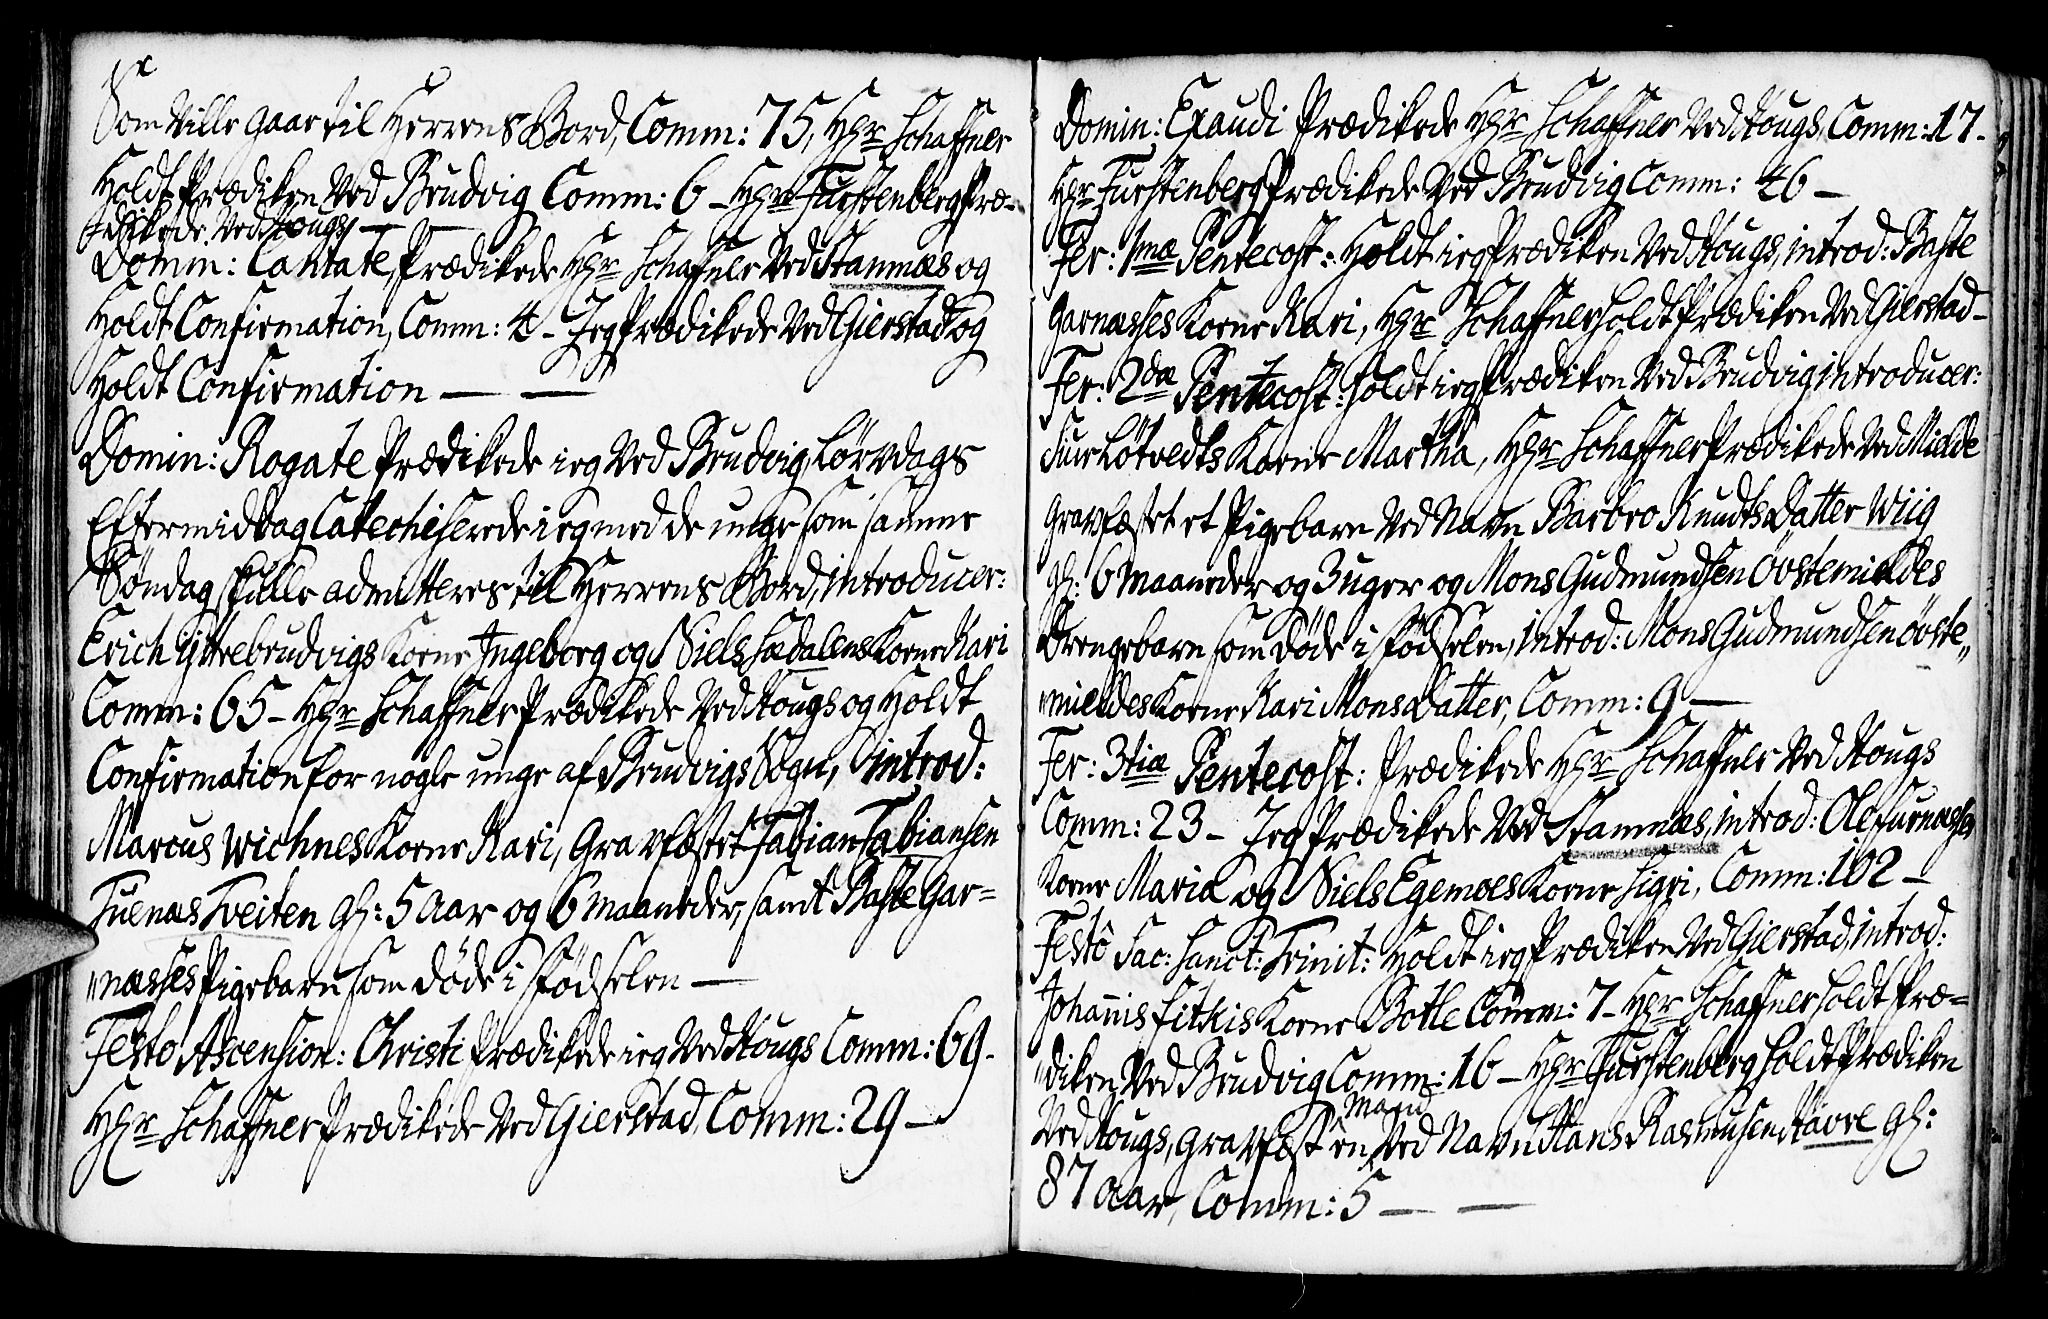 Som Ville gaae til Herrens Bord, Comm: 75, Hr Schaffner
Holdt Prædiken Ved Brudvig Comm: 6 – Hr Fürstenberg Præ-
dikede Ved Hougs –
Domin: Cantate, Prædikede Hr Schaffner Ved Stamnæs og
Holdt Confirmation, Comm: 4 – Jeg Prædikede Ved Gierstad og
Holdt Confirmation — —
Domin: Rogate Prædikede ieg Ved Brudvig, Lørvdags
Eftermiddag Catechiserede ieg med de unge som samme
Søndag skulle admitteres til Herrens Bord, introducer:
Erich ÿttrebrudvigs Kone Ingeborg og Niels Sædalens Kone Kari
Comm: 65 – Hr Schaffner Prædikede Ved Hougs og Holdt
Confirmation for nogle unge af Brudvigs Sogn, introd:
Marcus Wichnes Kone Kari, Gravfæstet Fabian Fabiansen
Fuenæs Tveiten gl: 5 Aar og 6 Maaneder, samt Baste Gar=
„næsses Pigebarn som døde i fødselen —
Festo Ascension: Christi Prædikede ieg Ved Hougs Comm: 69 –
Hr Schaffner Prædikede Ved Gierstad, Comm: 29 —
Domin: Exaudi Prædikede Hr Schaffner Ved Hougs, Comm: 17 –
Hr Fürstenberg Prædikede Ved Brudvig Comm: 46 —
Fer: 1mæ Pentecost: Holdt ieg Prædiken Ved Hougs, introd: Baste
Garnæsses Kone Kari, Hr Schaffner holdt Prædiken Ved Gierstad –
Fer: 2dæ Pentecost: holdt ieg Prædiken Ved Brudvig introducer:
Siur Løtvedts Kone Martha, Hr Schaffner Prædikede Ved Mielde
Gravfæstet et Pigebarn Ved Navn Barbro Knudts Datter Wiig
gl: 6 Maaneder og 3 uger og Mons Gudmundsen Øvstemieldes
Drengebarn som døde i fødselen, introd: Mons Gudmundsen øvste„
„mieldes Kone Kari Mons Datter, Comm: 9 —
Fer: 3tiæ Pentecost: Prædikede Hr Schaffner Ved Hougs
Comm: 23 – Jeg Prædikede Ved Stamnæs, introd: Ole Furnæsses
Kone Maria og Niels Egemoes Kone Sigri, Comm: 102 –
Festô Sac: Sanct: Trinit: Holdt ieg Prædiken Ved Gierstad, introd:
Johannis Fitkis Kone Botle Comm: 7 – Hr Schaffner holdt Præ=
„diken Ved Brudvig Comm: 16 – Hr Fürstenberg holdt Prædiken
Ved Hougs, Gravfæst en Mand Ved Navn Hans Rasmusen Havre gl:
87 Aar, Comm: 5 — —